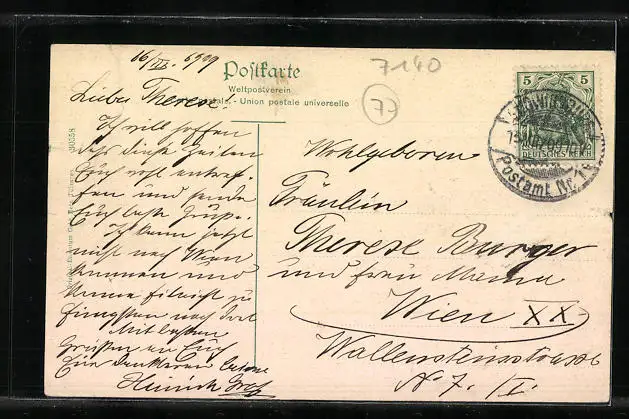 16/III. 1909
Postkarte
Weltpostverein
- Union postale universelle
7140
77
5 5
DEUTSCHES REICH
Postamt Nr. 1
90558
Liebe Therese!
Ich will hoffen
dass diese Zeilen
Euch wohl
und sende
Euch beste Grüße.
Ich kann jetzt
nicht nach Wien
kommen und
komme zu
Pfingsten nach
Mit besten
Grüßen an Euch
Euer dankbarer
Heinrich
Wohlgeboren
Fräulein
Therese Burger
und frau Mama
Wien XX.
Wallensteinstrasse
N. 7. /I.